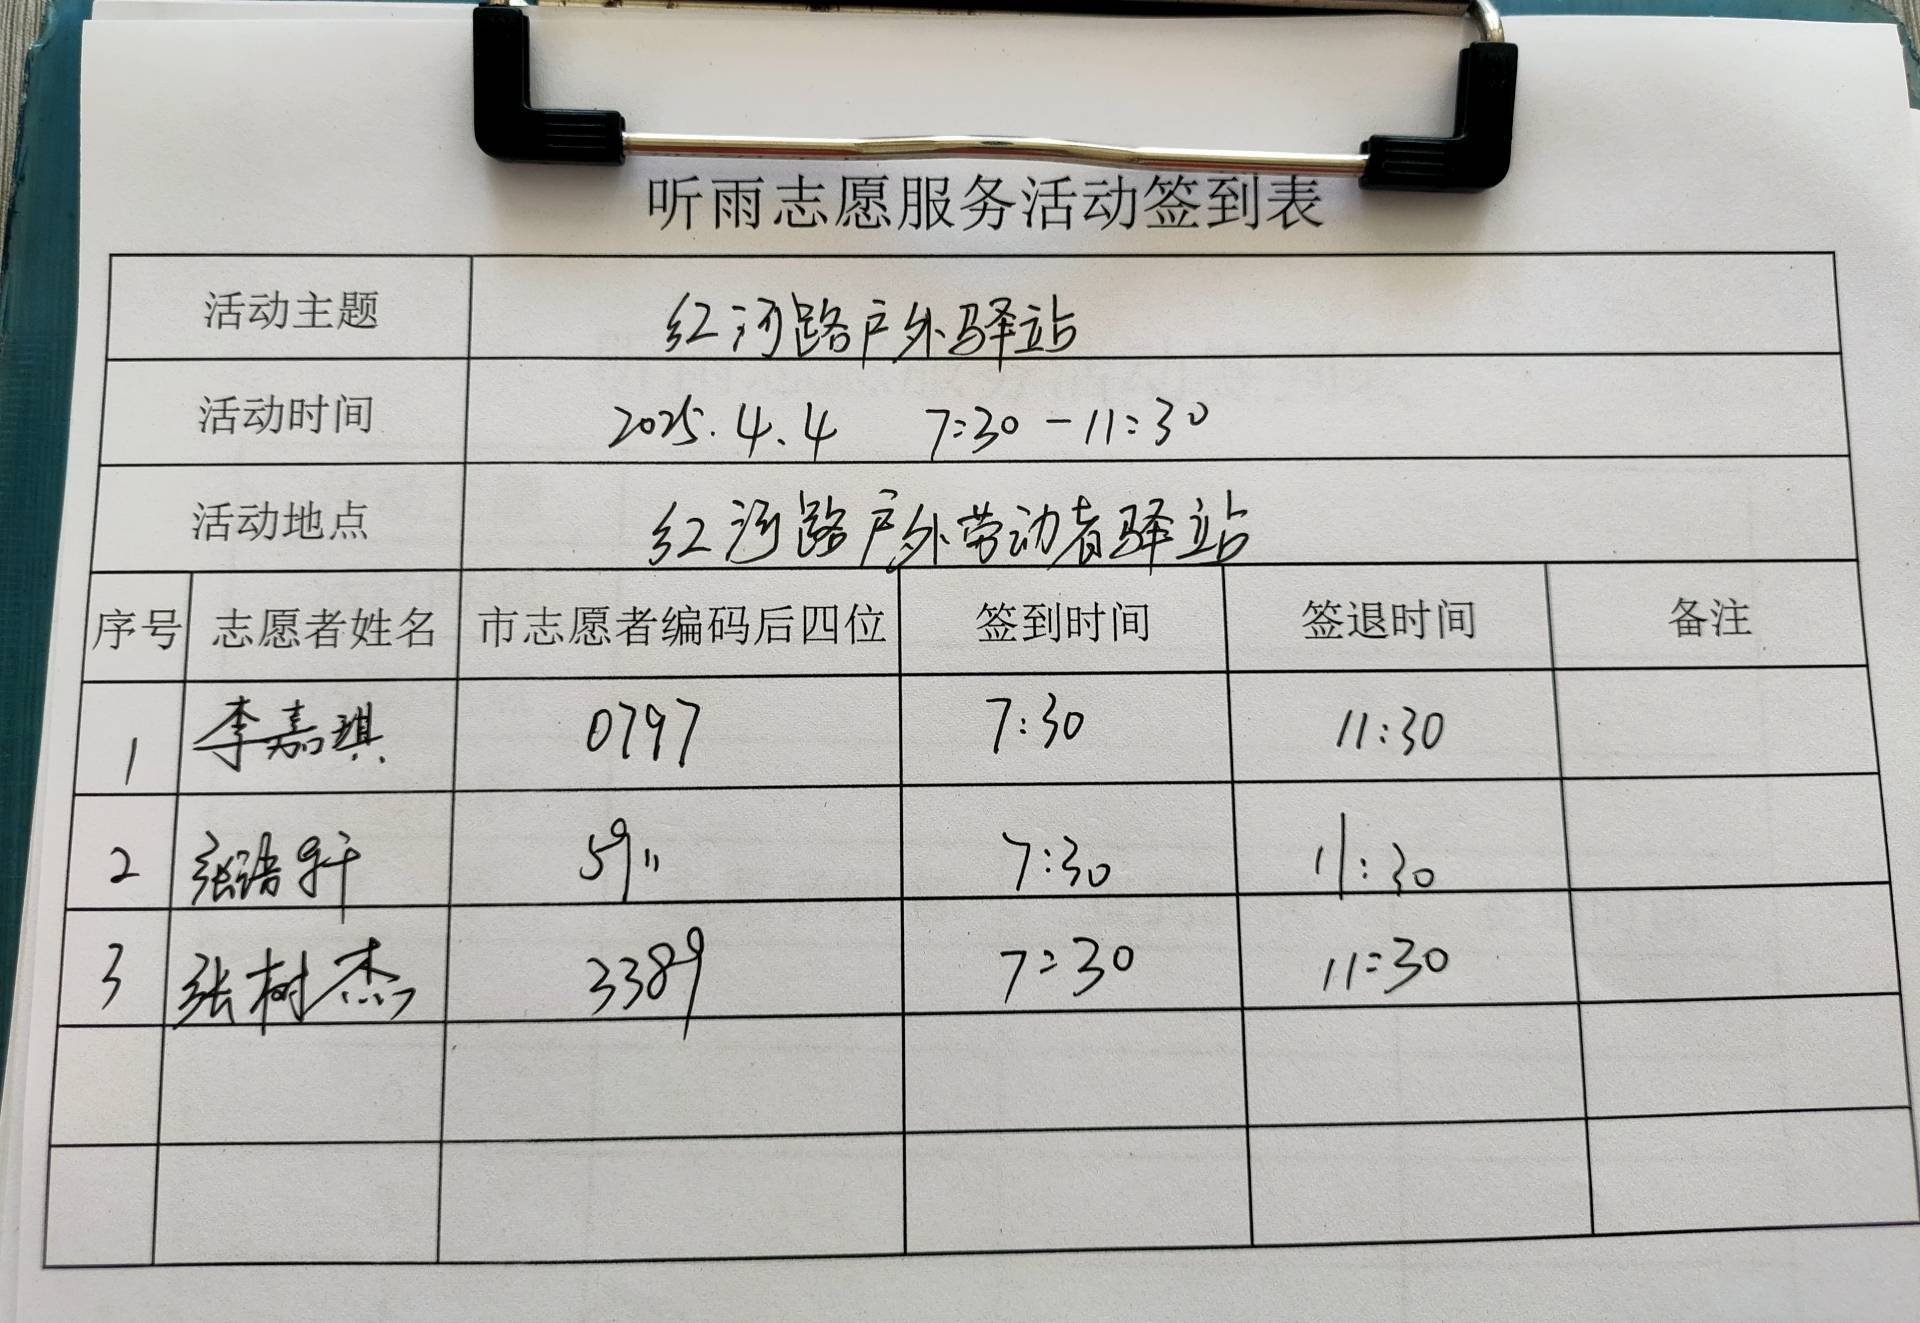 听雨志愿服务活动签到表
活动主题 红河路户外驿站
活动时间 2025.4.4 7:30-11:30
活动地点 红河路户外劳动者驿站
序号 志愿者姓名 市志愿者编码后四位 签到时间 签退时间 备注
1 李嘉琪 0797 7:30 11:30
2 张语轩 5911 7:30 11:30
3 张树杰 3389 7:30 11:30